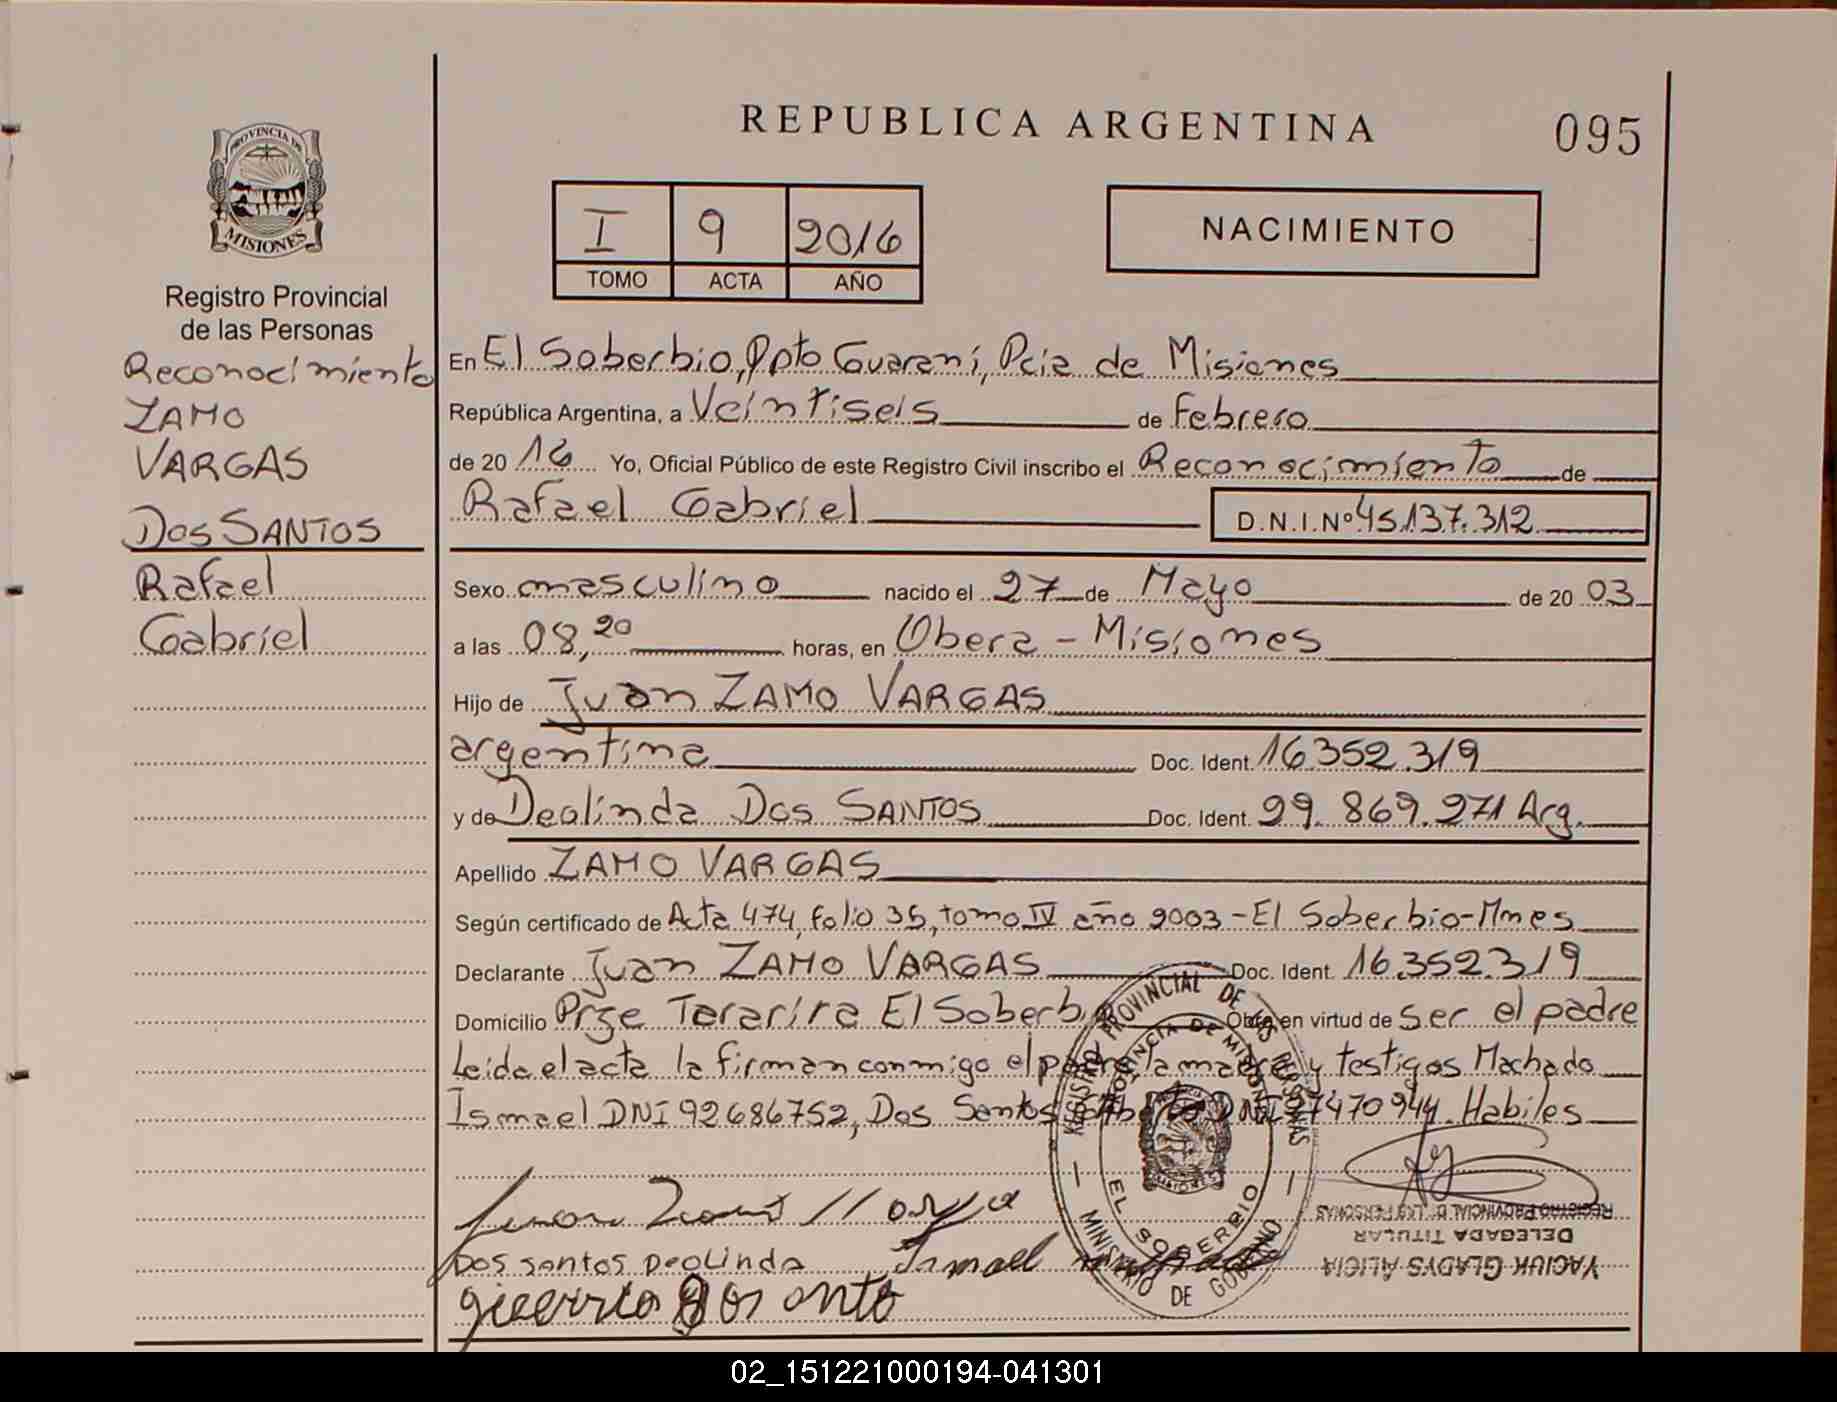 REPUBLICA ARGENTINA
095
PROVINCIA DE
MISIONES
Registro Provincial
de las Personas
Reconocimiento
ZAMO
VARGAS
DOS SANTOS
Rafael
Gabriel
I 9 2016
TOMO ACTA AÑO
NACIMIENTO
En El Soberbio, Dpto Guaraní, Pcia de Misiones
República Argentina, a Veintiseis de Febrero
de 20 16 Yo, Oficial Público de este Registro Civil inscribo el Reconocimiento de
Rafael Gabriel D.N.I.Nº 45.137.312
Sexo masculino nacido el 27 de Mayo de 20 03
a las 08,20 horas, en Obera - Misiones
Hijo de Juan ZAMO VARGAS
argentina Doc. Ident. 16.352.319
y de Deolinda Dos SANTOS Doc. Ident. 29.869.271 Arg.
Apellido ZAMO VARGAS
Según certificado de Acta 474, folio 35, tomo IV año 2003 - El Soberbio - Mnes
Declarante Juan ZAMO VARGAS Doc. Ident. 16.352.319
Domicilio Prje Tararira El Soberbio Obra en virtud de ser el padre
Leida el acta la firman conmigo el padre, la madre y testigos Machado
Ismael DNI 92686752, Dos Santos DNI 27470944. Habiles
REGISTRO PROVINCIAL DE LAS PERSONAS
PROVINCIA DE MISIONES
EL SOBERBIO
MINISTERIO DE GOBIERNO
Dos santos Deolinda Ismael
YACIUK GLADYS ALICIA
DELEGADA TITULAR
REGISTRO PROVINCIAL D. LAS PERSONAS
02_151221000194-041301